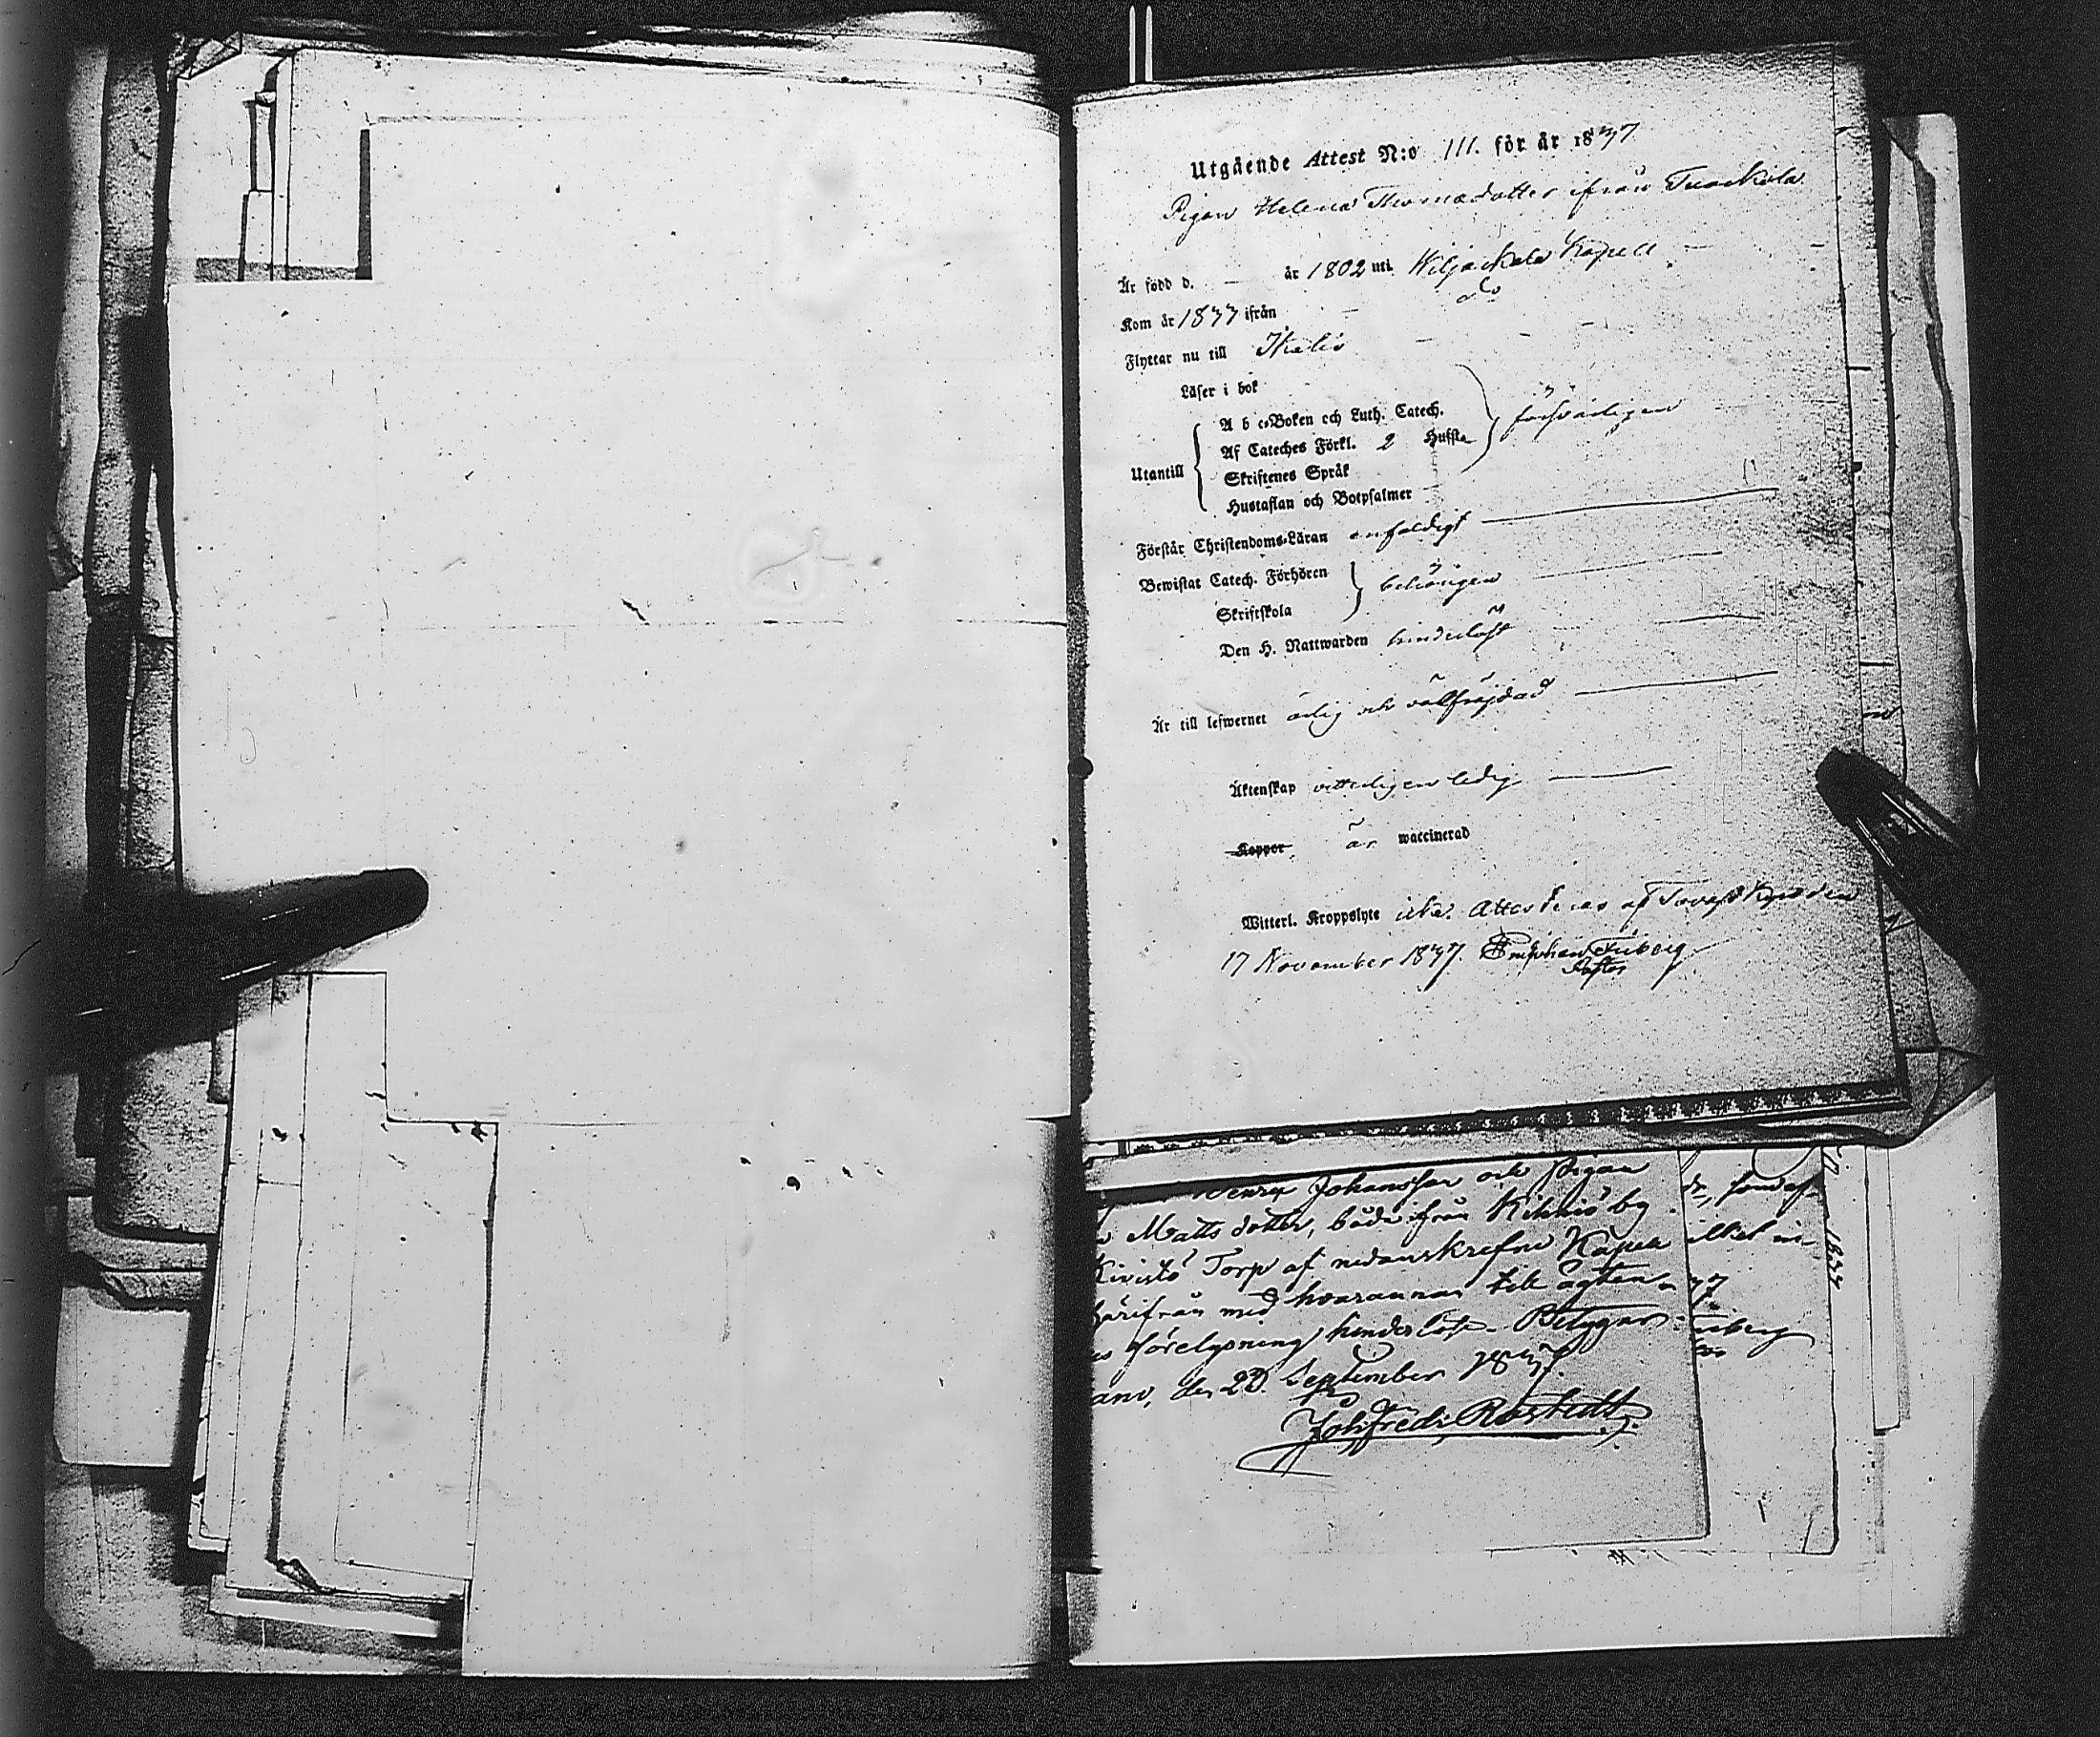 Utgående Attest N:o 111. för år 1837
Pigan Helena Thomædotter ifrån Tuorkola
Är född d. — år 1802 uti Wiljackala Kapell
Kom år 1833 ifrån do
Flyttar nu till Ikalis
Läser i bok
A b c-Boken och Luth. Catech.
Af Cateches Förkl. 2 Hufst.
försvarligen
Utantill
Skriftenes Språk
Hustaflan och Botpsalmer
Förstår Christendoms-Läran enfaldigt
Bewistat Catech. Förhören
behörigen
Skriftskola
Den H. Nattwarden hinderlöst
Är till lefwernet ärlig och välfrejdad
Äktenskap vitterligen ledig
Koppor är waccinerad
Witterl. Kroppslyte icke. Attesteras af Tavastkyro den
17 November 1837. Friberg
Pastor
Johansson och Pigan
Matts dotter, både ifrån Kihniö by
Kivistö Torp af nedanskrefne Kapell
härifrån med hvarannan till ägten-
förelysning hinderlöst. Betygar
den 20. September 1837.
Joh. Fredr. Rostedt
ilket in-
37
iberg
1837